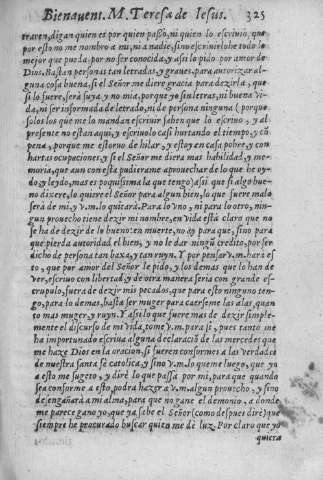 Bienauent. M. Teresa de Iesus. 325
traxeren, digan quien es por quien passò, ni quien lo escriuio, que
por esto no me nombro a mi, ni a nadie, sino escriuirlohe todo lo
mejor que pueda por no ser conocida, y assi lo pido por amor de
Dios. Bastan personas tan letradas, y graues, para autorizar al-
guna cosa buena, si el Señor me diere gracia para dezirla, que
si lo fuere, serà suya, y no mia, porque yo sin letras, ni buena vi-
da, ni ser informada de letrado, ni de persona ninguna (porque
solos los que me lo mandan escriuir saben que lo escriuo, y al
presente no estan aqui, y escriuolo casi hurtando el tiempo, y cõ
pena, porque me estoruo de hilar, y estoy en casa pobre, y con
hartas ocupaciones, y si el Señor me diera mas habilidad, y me-
moria, que aun con esta pudierame aprouechar de lo que he oy-
do, y leydo, mas es poquissima la que tengo) assi que si algo bue-
no dixere, lo quiere el Señor para algun bien, lo que fuere malo
serà de mi, y V.m. lo quitarà. Para lo vno, ni para lo otro, nin-
gun prouecho tiene dezir mi nombre, en vida està claro que no
se ha de dezir de lo bueno: en muerte, no ay para que, sino para
que pierda autoridad el bien, y no le dar ningũ credito, por ser
dicho de persona tan baxa, y tan ruyn. Y por pensar V.m. harà es
to, que por amor del Señor le pido, y los demas que lo han de
ver, escriuo con libertad, y de otra manera seria con grande es-
crupulo, fuera de dezir mis pecados, que para esto ninguno ten-
go, para lo demas, basta ser muger para caerseme las alas, quan
to mas muger, y ruyn. Y assi lo que fuere mas de dezir simple-
mente el discurso de mi vida, tome V.m. para si, pues tanto me
ha importunado escriua alguna declaraciõ de las mercedes que
me haze Dios en la oracion, si fueren conformes a las verdades
de nuestra santa fè catolica, y sino V.m. lo queme luego, que yo
a esto me sugeto, y dirè lo que passa por mi, para que quando
sea conforme a esto, podrà hazer a V.m. algun prouecho, y sino
desengañarà a mi alma, para que no gane el demonio, a donde
me parece gano yo, que ya sabe el Señor (como despues dirè) que
siempre he procurado buscar quien me dè luz. Por claro que yo
quiera